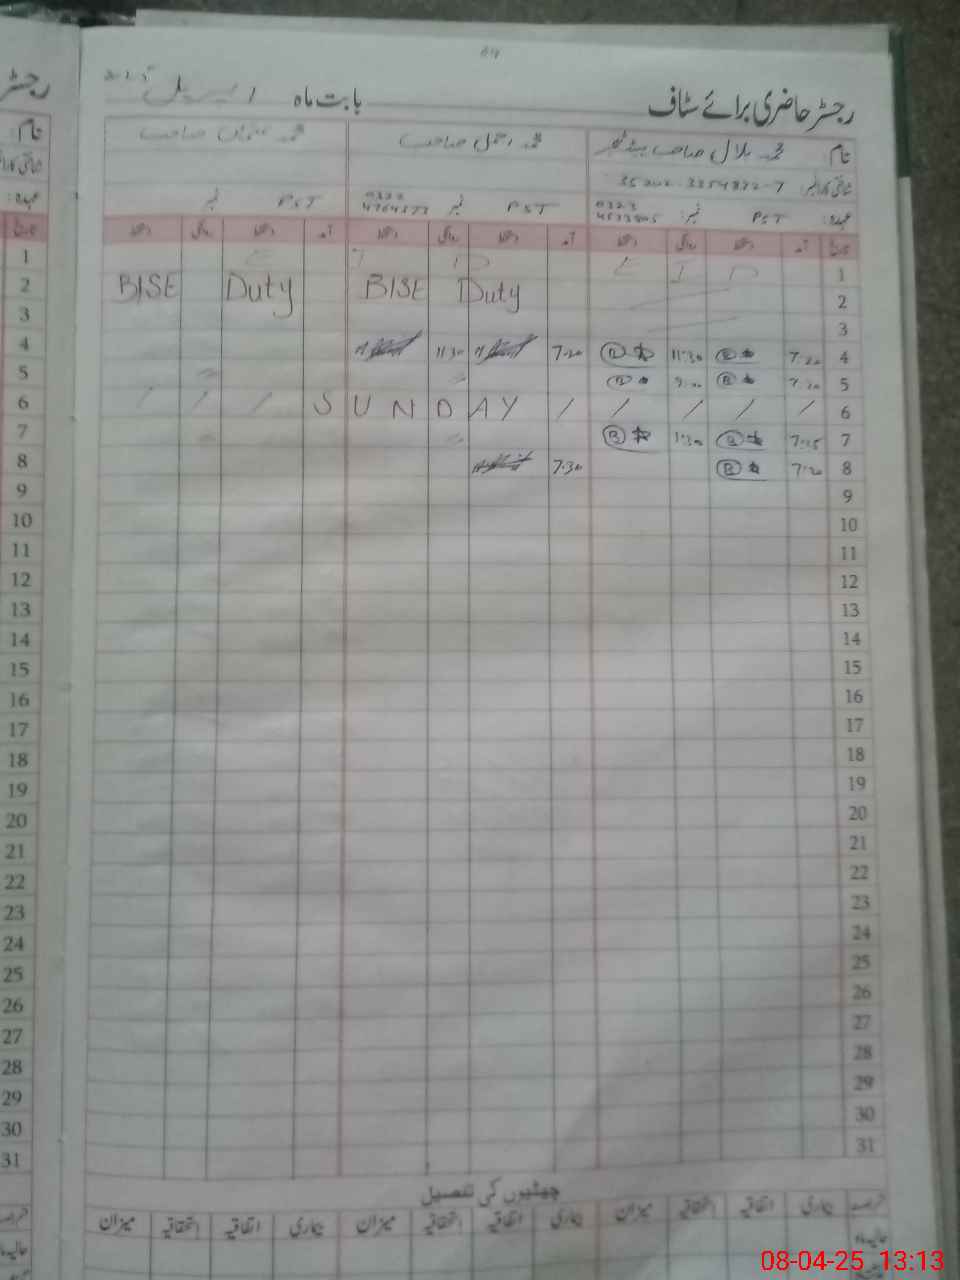 64
رجسٹر حاضری برائے سٹاف بابت ماہ اپریل 2025
نام محمد بلال صاحب محمد اجمل صاحب محمد عثمان صاحب
شناختی کارڈ نمبر:
عہدہ: PST نمبر: 0323 PST نمبر 0322 PST نمبر
تاریخ آمد دستخط روانگی دستخط آمد دستخط روانگی دستخط آمد دستخط روانگی دستخط
1 E I D E I D
2 BISE Duty BISE Duty
3
4 7:20 11:30 7:20 11:30
5 7:20
6 S U N D A Y
7 7:25 1:30
8 7:20 7:30
9
10
11
12
13
14
15
16
17
18
19
20
21
22
23
24
25
26
27
28
29
30
31
چھٹیوں کی تفصیل
بیماری اتفاقیہ استحقاقیہ میزان بیماری اتفاقیہ استحقاقیہ میزان بیماری اتفاقیہ استحقاقیہ میزان
حالیہ ماہ
08-04-25 13:13